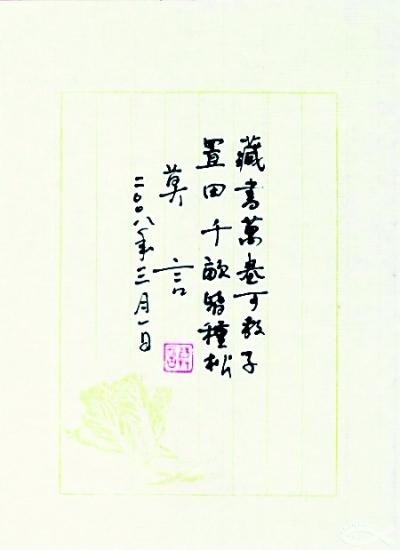 藏書萬卷可教子
置田千畝皆種松
莫言
二〇〇八年三月一日